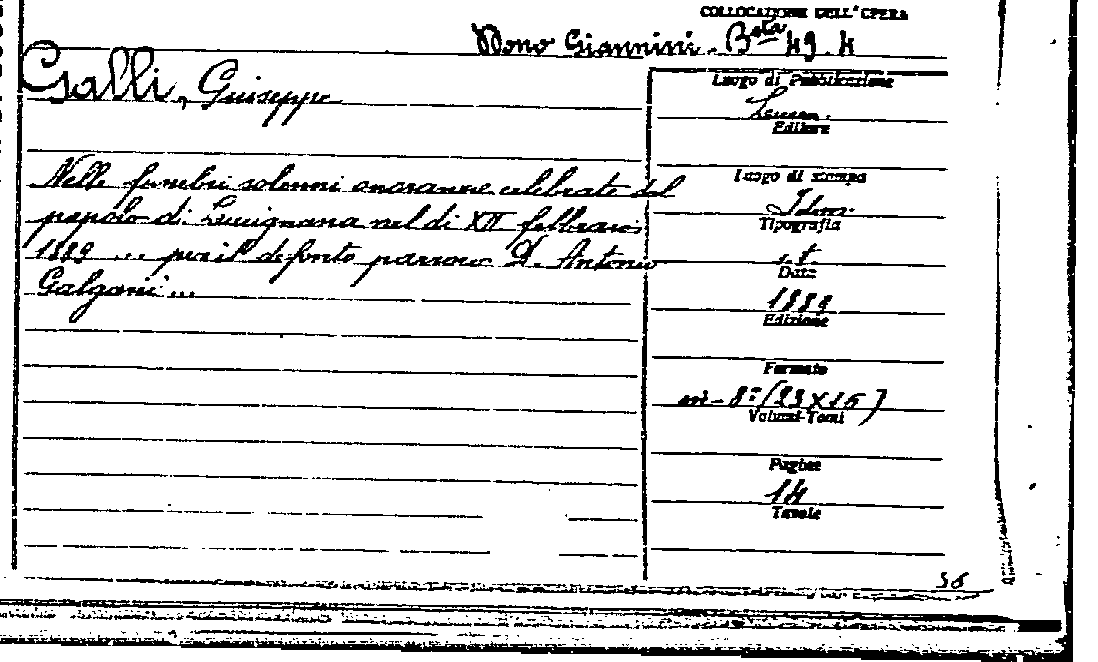 COLLOCAZIONE DELL'OPERA
Dono Giannini. Bsta 49.4
Galli, Giuseppe
Nelle funebri solenni onoranze celebrate dal
popolo di Lucignana nel dì XII febbraio
1889 ... per il defonto parroco D. Antonio
Galgani ...
Luogo di Pubblicazione
Lucca.
Editore
Luogo di stampa
Idem.
Tipografia
s.t.
Data
1889
Edizione
Formato
in-8º (23x16)
Volumi-Tomi
Pagine
14
Tavole
56